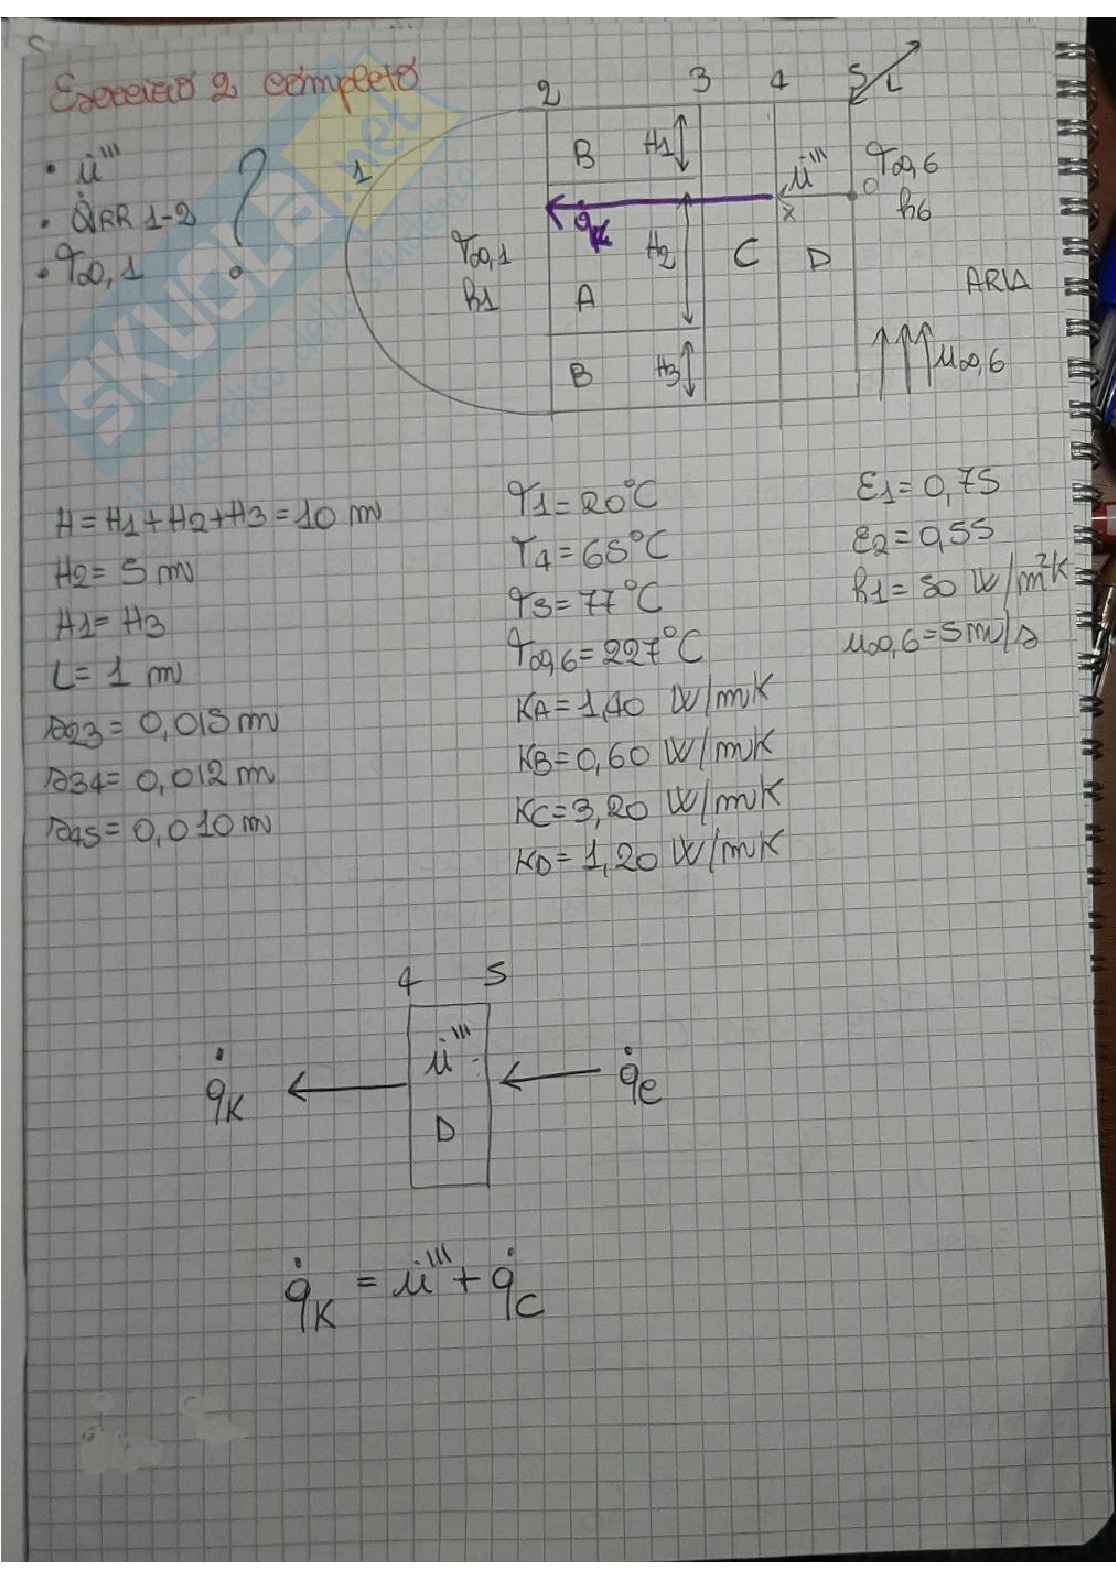 Esercizio 2 completo
2 3 4 5 L
• u̇'''
• Q̇IRR 1-2
• T∞,1
?
1
B H1
u̇'''
x
T∞,6
h6
q̇K
T∞,1
h1
H2
C D
A
ARIA
B H3
u∞,6
SKUOLA.net
H = H1+H2+H3 = 10 m
H2 = 5 m
H1 = H3
L = 1 m
s23 = 0,015 m
s34 = 0,012 m
s45 = 0,010 m
T1 = 20°C
T4 = 65°C
T3 = 77°C
T∞,6 = 227°C
KA = 1,40 W/mK
KB = 0,60 W/mK
KC = 3,20 W/mK
KD = 1,20 W/mK
ε1 = 0,75
ε2 = 0,55
h1 = 50 W/m²K
u∞,6 = 5 m/s
4 5
u̇'''
q̇K q̇c
D
q̇K = u̇''' + q̇C